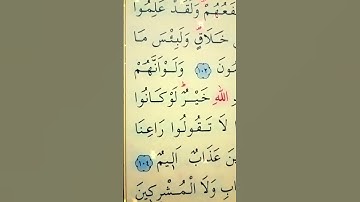 فَعُهُمْ وَلَقَدْ عَلِمُوا
خَلَاقٍ وَلَبِئْسَ مَا
ونَ ١٠٢ وَلَوْ اَنَّهُمْ
اللّٰهِ خَيْرٌ لَوْ كَانُوا
ا لَا تَقُولُوا رَاعِنَا
ينَ عَذَابٌ اَلِيمٌ ١٠٤
ابِ وَلَا الْمُشْرِكِينَ